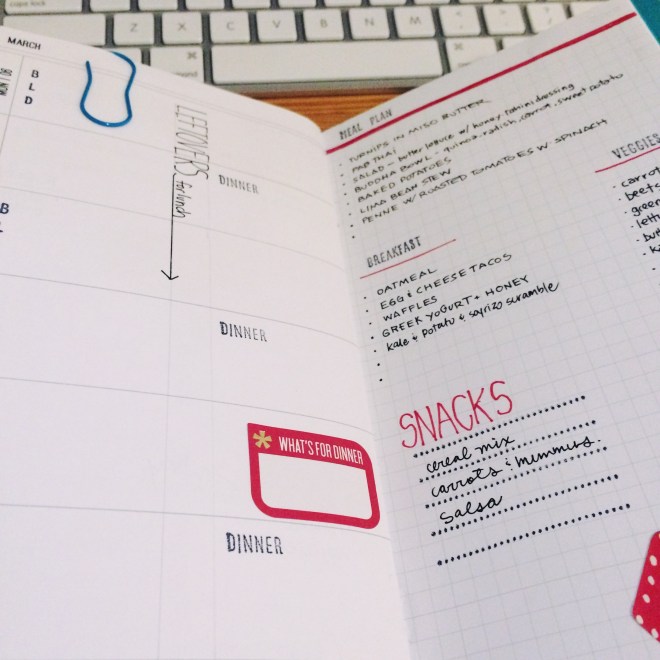 MARCH
B
L
D
LEFTOVERS for lunch
DINNER
B
L
DINNER
* WHAT'S FOR DINNER
DINNER
MEAL PLAN
• TURNIPS IN MISO BUTTER
• PAD THAI
• SALAD - butter lettuce w/ honey tahini dressing
• BUDDHA BOWL - quinoa, radish, carrot, sweet potato
• BAKED POTATOES
• LIMA BEAN STEW
• PENNE W/ ROASTED TOMATOES W SPINACH
BREAKFAST
• OATMEAL
• EGG & CHEESE TACOS
• WAFFLES
• GREEK YOGURT + HONEY
• kale & potato & soyrizo scramble
SNACKS
cereal mix
carrots & hummus
salsa
VEGGIES
• carrot
• beets
• green
• lett
• but